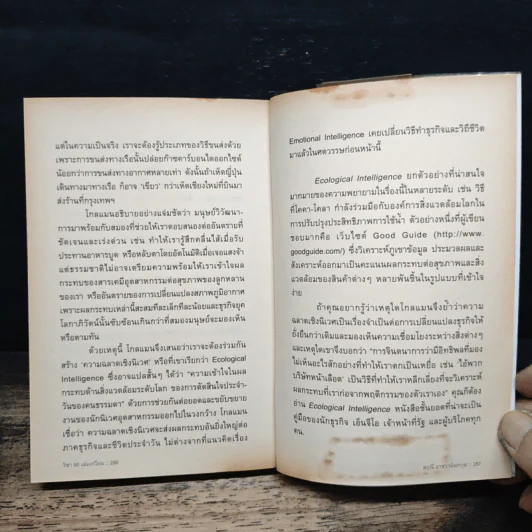 แต่ในความเป็นจริง เราจะต้องรู้ประเภทของวิธีขนส่งด้วย
เพราะการขนส่งทางเรือนั้นปล่อยก๊าซคาร์บอนไดออกไซด์
น้อยกว่าการขนส่งทางอากาศหลายเท่า ดังนั้นถ้าเห็ดญี่ปุ่น
เดินทางมาทางเรือ ก็อาจ 'เขียว' กว่าเห็ดเชียงใหม่ที่บินมา
ส่งร้านที่กรุงเทพฯ
โกลแมนอธิบายอย่างแจ่มชัดว่า มนุษย์วิวัฒนา-
การมาพร้อมกับสมองที่ช่วยให้เราตอบสนองต่ออันตรายที่
ชัดเจนและเร่งด่วน เช่น ทำให้เรารู้สึกคลื่นไส้เมื่อรับ
ประทานอาหารบูด หรือหลับตาโดยอัตโนมัติเมื่อเจอแสงจ้า
แต่ธรรมชาติไม่อาจเตรียมความพร้อมให้เราเข้าใจผล
กระทบของสารเคมีอุตสาหกรรมต่อสุขภาพของลูกหลาน
ของเรา หรืออันตรายของการเปลี่ยนแปลงสภาพภูมิอากาศ
เพราะผลกระทบเหล่านี้สะสมทีละเล็กทีละน้อยและธุรกิจยุค
โลกาภิวัตน์นั้นซับซ้อนเกินกว่าที่สมองมนุษย์จะมองเห็น
หรือตามทัน
ด้วยเหตุนี้ โกลแมนจึงเสนอว่าเราจะต้องร่วมกัน
สร้าง 'ความฉลาดเชิงนิเวศ' หรือที่เขาเรียกว่า Ecological
Intelligence ซึ่งอาจแปลสั้นๆ ได้ว่า "ความเข้าใจในผล
กระทบทางด้านสิ่งแวดล้อมระดับโลก ของการตัดสินใจประจำ
วันของคนธรรมดา" ด้วยการช่วยกันต่อยอดและขยับขยาย
งานของนักนิเวศอุตสาหกรรมออกไปในวงกว้าง โกลแมน
เชื่อว่า ความฉลาดเชิงนิเวศจะส่งผลกระทบอันยิ่งใหญ่ต่อ
ภาคธุรกิจและชีวิตประจำวัน ไม่ต่างจากที่แนวคิดเรื่อง
วิชา 50 เล่มเกวียน :: 286
Emotional Intelligence เคยเปลี่ยนวิธีทำธุรกิจและวิถีชีวิต
มาแล้วในศตวรรษก่อนหน้านี้
Ecological Intelligence ยกตัวอย่างที่น่าสนใจ
มากมายของความพยายามในเรื่องนี้ในหลายระดับ เช่น วิธี
ที่โคคา-โคลา กำลังร่วมมือกับองค์การสิ่งแวดล้อมโลกใน
การปรับปรุงประสิทธิภาพการใช้น้ำ ตัวอย่างหนึ่งที่ผู้เขียน
ชอบมากคือ เว็บไซต์ Good Guide (http://www.
goodguide.com/) ซึ่งวิเคราะห์ภูเขาข้อมูล ประมวลผลและ
สังเคราะห์ออกมาเป็นคะแนนผลกระทบต่อสุขภาพและสิ่ง
แวดล้อมของสินค้าต่างๆ หลายพันชิ้นในรูปแบบที่เข้าใจ
ง่าย
ถ้าคุณอยากรู้ว่าเหตุใดโกลแมนจึงย้ำว่าความ
ฉลาดเชิงนิเวศเป็นเรื่องจำเป็นต่อการเปลี่ยนแปลงธุรกิจให้
ยั่งยืนกว่าเดิมและมองเห็นความเชื่อมโยงระหว่างสิ่งต่างๆ
และเหตุใดเขาจึงบอกว่า "การจินตนาการว่ามีอิทธิพลที่มอง
ไม่เห็นอะไรสักอย่างที่ทำให้เราตกเป็นเหยื่อ เช่น 'ไอ้พวก
บริษัทหน้าเลือด' เป็นวิธีที่ทำให้เราหลีกเลี่ยงที่จะวิเคราะห์
ผลกระทบที่เราก่อจากพฤติกรรมของตัวเราเอง" คุณก็ต้อง
อ่าน Ecological Intelligence หนังสือชั้นยอดที่น่าจะเป็น
คู่มือของนักธุรกิจ เอ็นจีโอ เจ้าหน้าที่รัฐ และผู้บริโภคทุก
คน.
สฤณี อาชวานันทกุล :: 287